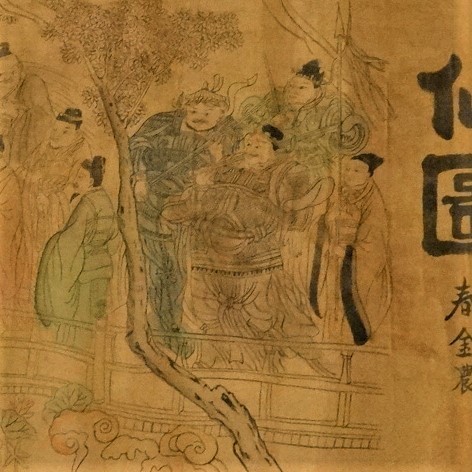 仙圖
春金農